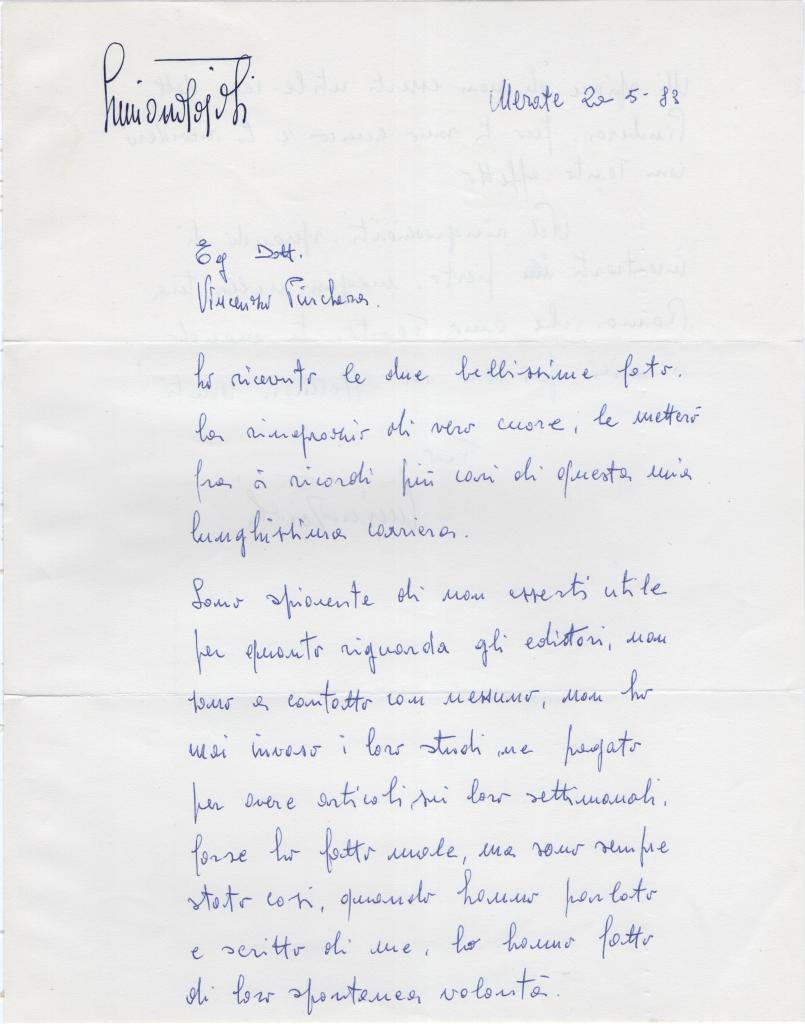 Luciano Tajoli
Merate 20-5-83
Eg Dott.
Vincenzo
ho ricevuto le due bellissime foto.
La ringrazio di vero cuore, le metterò
fra i ricordi più cari di questa mia
lunghissima carriera.
Sono spiacente di non esserti utile
per quanto riguarda gli editori, non
sono a contatto con nessuno, non ho
mai invaso i loro studi, ne pagato
per avere articoli, sui loro settimanali.
forse ho fatto male, ma sono sempre
stato così, quando hanno parlato
e scritto di me, lo hanno fatto
di loro spontanea volontà.